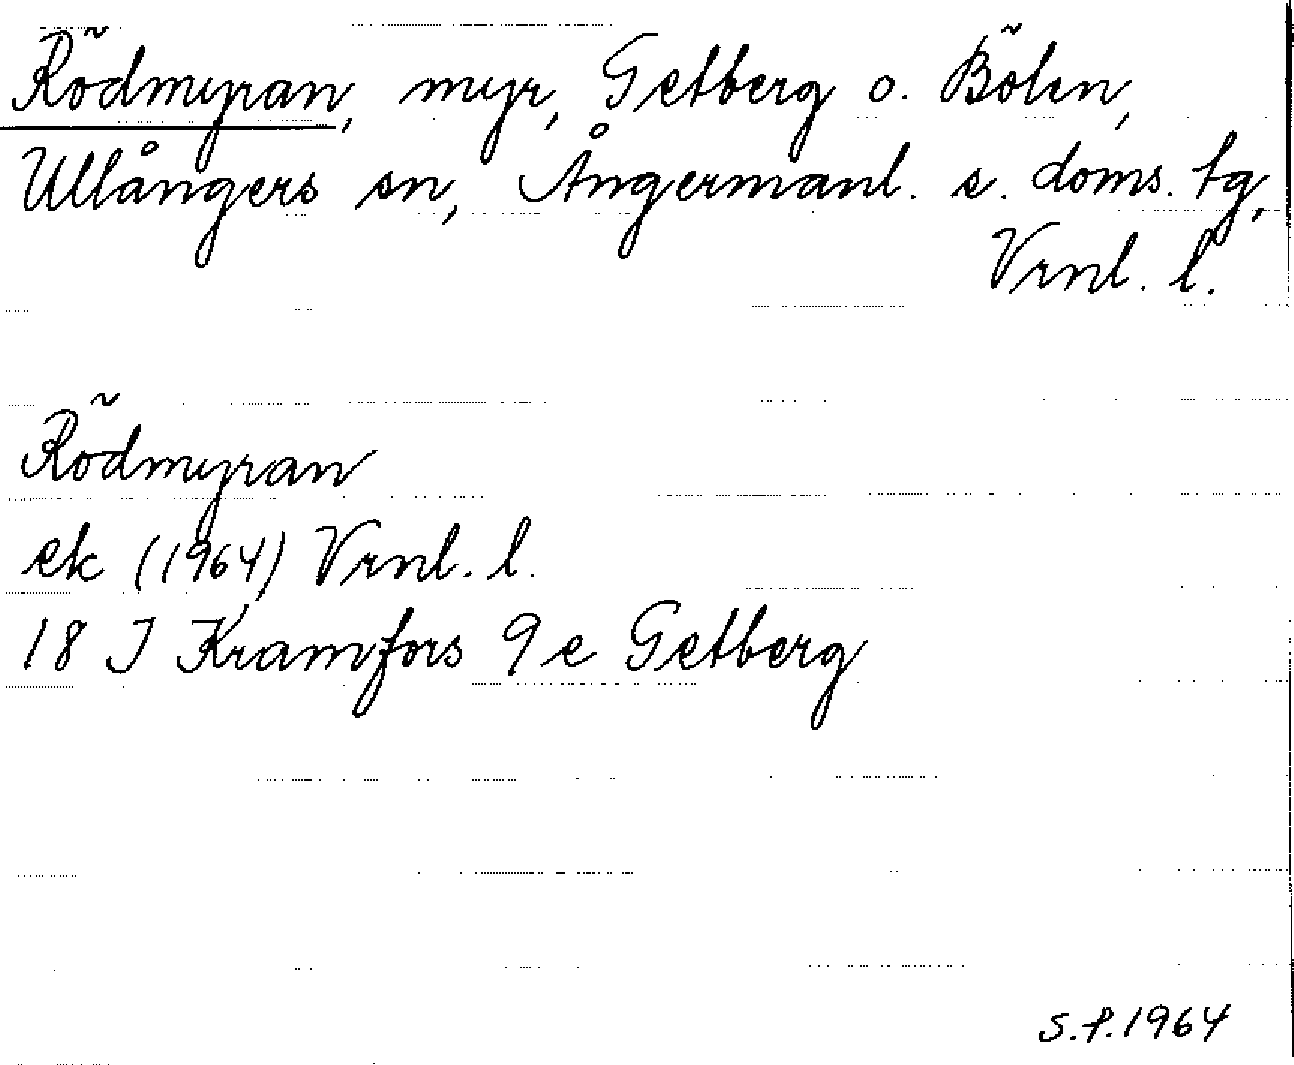 Rödmyran, myr, Getberg o. Bölen,
Ullångers sn, Ångermanl. s. doms. tg,
Vrnl. l.
Rödmyran
ek (1964) Vrnl. l.
18 J Kramfors 9 e Getberg
S.P.1964